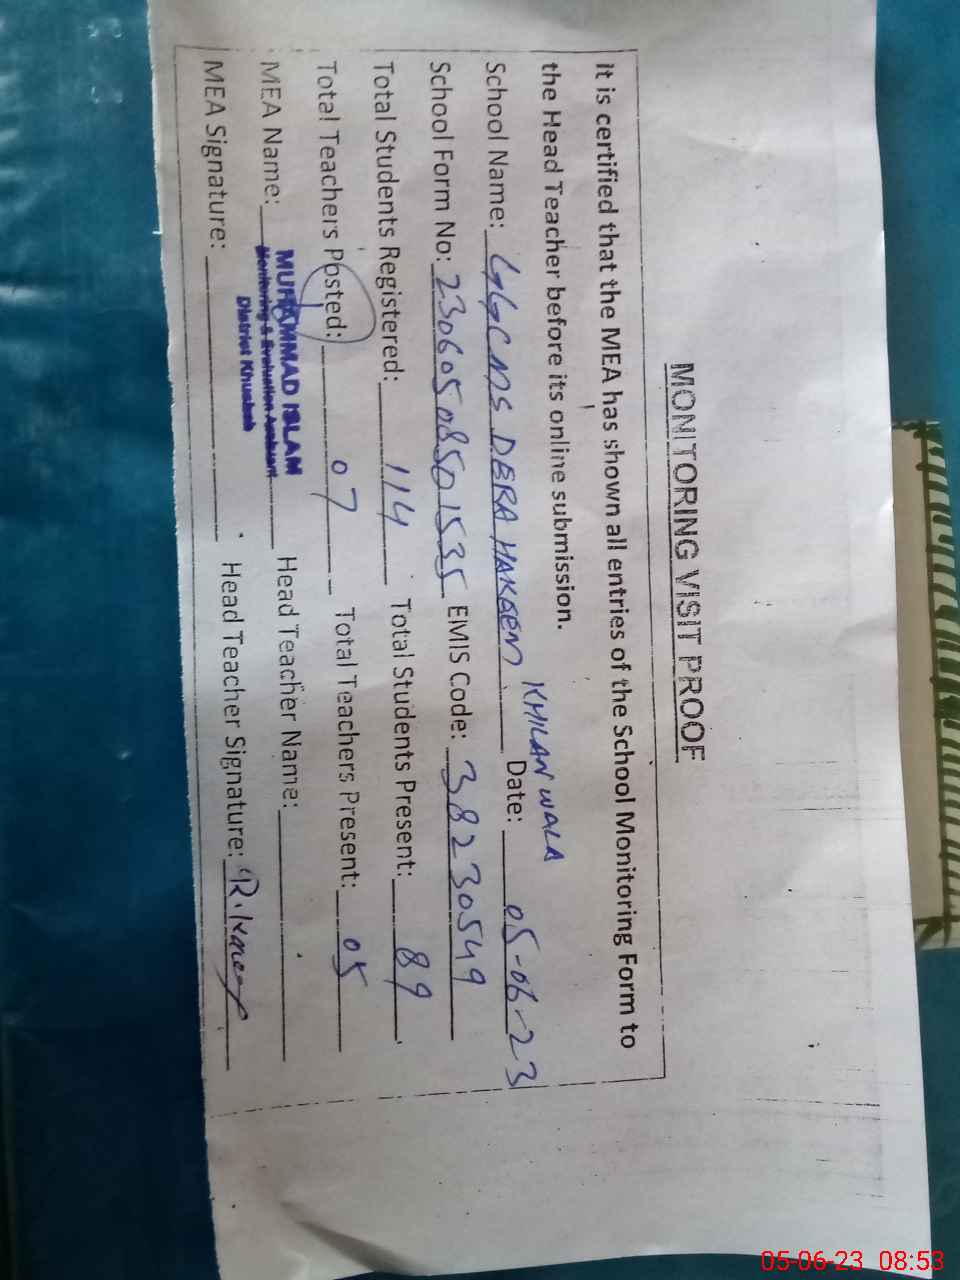 MONITORING VISIT PROOF
it is certified that the MEA has shown all entries of the School Monitoring Form to
the Head Teacher before its online submission.
School Name: GGCMS DERA HAKEEM KHILAN WALA Date: 05-06-23
School Form No: 23060508501535 EMIS Code: 38230549
Total Students Registered: 114 Total Students Present: 89
Total Teachers Posted: 07 Total Teachers Present: 05
MEA Name: MUHAMMAD ISLAM Head Teacher Name:
Monitoring & Evaluation Assistant
District Khushab
MEA Signature: Head Teacher Signature:
05-06-23 08:53